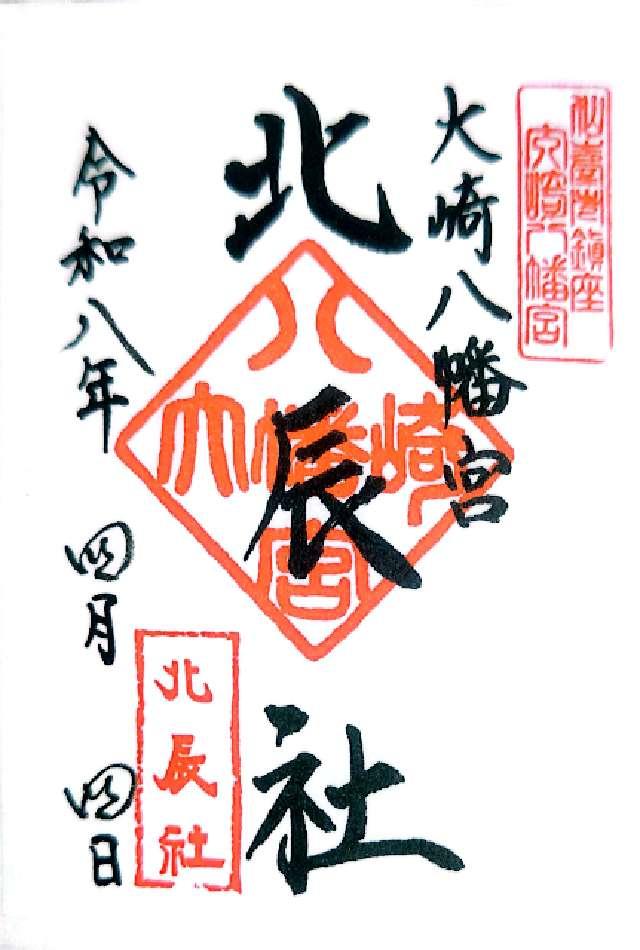 仙臺市鎮座
大崎八幡宮
大崎八幡宮
北辰社
大崎八幡宮
北辰社
令和八年 四月 四日